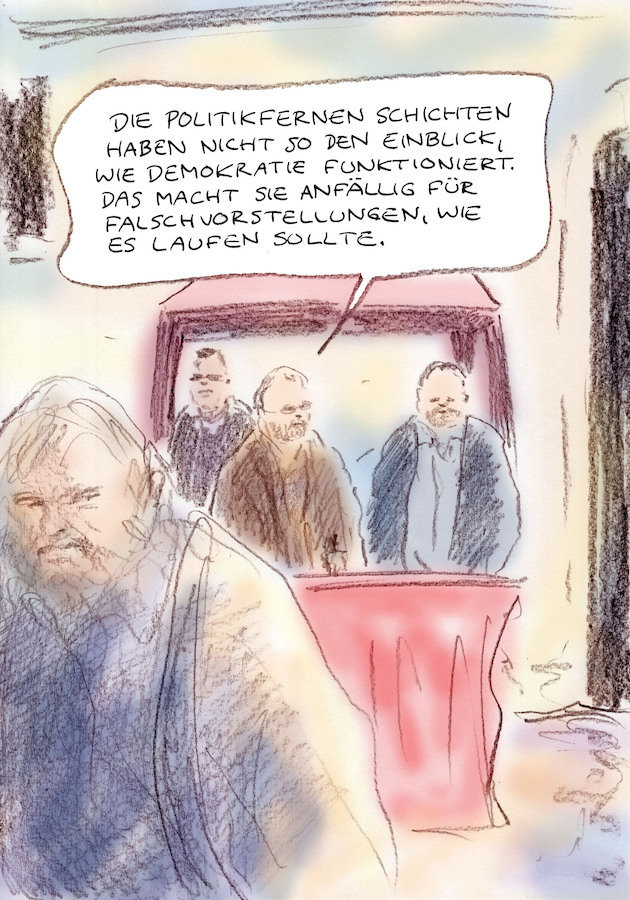 DIE POLITIKFERNEN SCHICHTEN
HABEN NICHT SO DEN EINBLICK,
WIE DEMOKRATIE FUNKTIONIERT.
DAS MACHT SIE ANFÄLLIG FÜR
FALSCHVORSTELLUNGEN, WIE
ES LAUFEN SOLLTE.